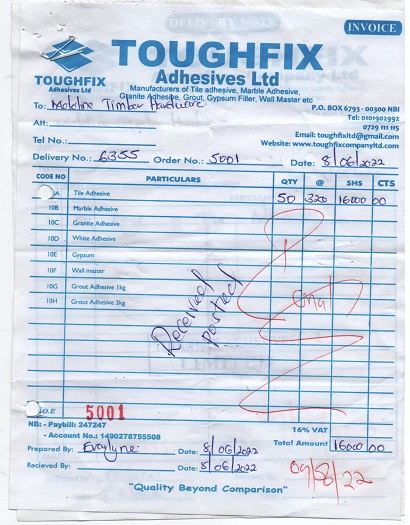 INVOICE
TOUGHFIX
TOUGHFIX Adhesives Ltd
Adhesives Ltd
Manufacturers of Tile adhesive, Marble Adhesive,
Granite Adhesive, Grout, Gypsum Filler, Wall Master etc
P.O. BOX 6793 - 00300 NBI
Tel: 0101902992
0729 111 115
Email: toughfixltd@gmail.com
Website: www.toughfixcompanyltd.com
To: Timber Hardware
Att:
Tel No.:
Delivery No.: 6355 Order No.: 5001 Date: 8/06/2022
CODE NO PARTICULARS QTY @ SHS CTS
Tile Adhesive 50 320 16000 00
10B Marble Adhesive
10C Granite Adhesive
10D White Adhesive
10E Gypsum
10F Wall master
10G Grout Adhesive 1kg
10H Grout Adhesive 3kg
Received
posted
5001
NB: - Paybill: 247247
- Account No.: 1490278755508
16% VAT
Total Amount 16000 00
Prepared By: Evarlyne Date: 8/06/2022
Recieved By: Date: 8/06/2022
09/8/22
"Quality Beyond Comparison"